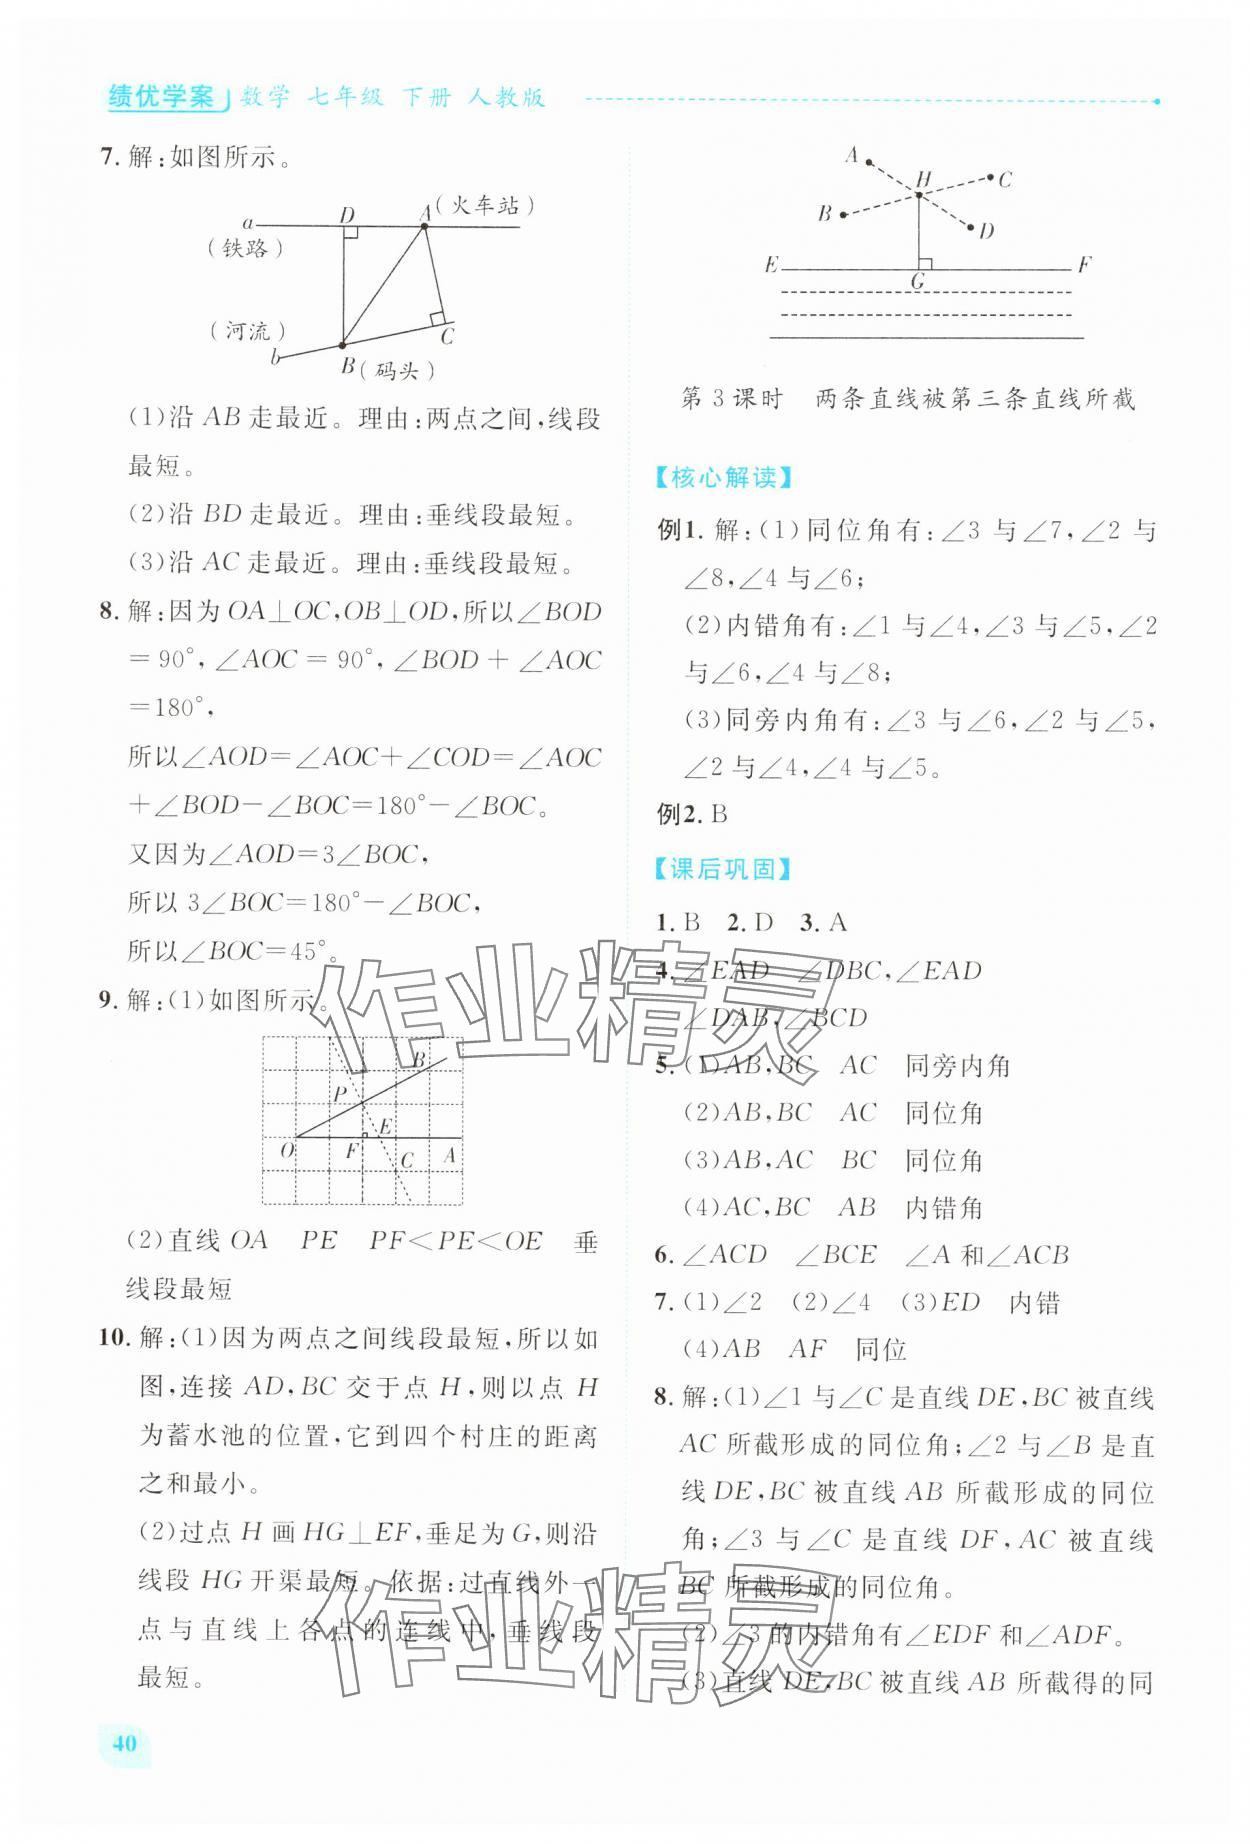 绩优学案 数学 七年级 下册 人教版
7. 解:如图所示。
a D A (火车站)
(铁路)
(河流)
b B (码头) C
(1)沿 AB 走最近。理由:两点之间,线段
最短。
(2)沿 BD 走最近。理由:垂线段最短。
(3)沿 AC 走最近。理由:垂线段最短。
8. 解:因为 OA⊥OC,OB⊥OD,所以∠BOD
=90°,∠AOC=90°,∠BOD+∠AOC
=180°,
所以∠AOD=∠AOC+∠COD=∠AOC
+∠BOD-∠BOC=180°-∠BOC。
又因为∠AOD=3∠BOC,
所以 3∠BOC=180°-∠BOC,
所以∠BOC=45°。
9. 解:(1)如图所示。
B
P
E
O F C A
(2)直线 OA PE PF<PE<OE 垂
线段最短
10. 解:(1)因为两点之间线段最短,所以如
图,连接 AD,BC 交于点 H,则以点 H
为蓄水池的位置,它到四个村庄的距离
之和最小。
(2)过点 H 画 HG⊥EF,垂足为 G,则沿
线段 HG 开渠最短。依据:过直线外一
点与直线上各点的连线中,垂线段
最短。
40
A H C
B D
E G F
第 3 课时 两条直线被第三条直线所截
【核心解读】
例1. 解:(1)同位角有:∠3 与∠7,∠2 与
∠8,∠4 与∠6;
(2)内错角有:∠1 与∠4,∠3 与∠5,∠2
与∠6,∠4 与∠8;
(3)同旁内角有:∠3 与∠6,∠2 与∠5,
∠2 与∠4,∠4 与∠5。
例2. B
【课后巩固】
1. B 2. D 3. A
4. ∠EAD ∠DBC,∠EAD
∠DAB,∠BCD
5. (1)AB,BC AC 同旁内角
(2)AB,BC AC 同位角
(3)AB,AC BC 同位角
(4)AC,BC AB 内错角
6. ∠ACD ∠BCE ∠A 和∠ACB
7. (1)∠2 (2)∠4 (3)ED 内错
(4)AB AF 同位
8. 解:(1)∠1 与∠C 是直线 DE,BC 被直线
AC 所截形成的同位角;∠2 与∠B 是直
线 DE,BC 被直线 AB 所截形成的同位
角;∠3 与∠C 是直线 DF,AC 被直线
BC 所截形成的同位角。
(2)∠3 的内错角有∠EDF 和∠ADF。
(3)直线 DE,BC 被直线 AB 所截得的同
作业精灵
作业精灵